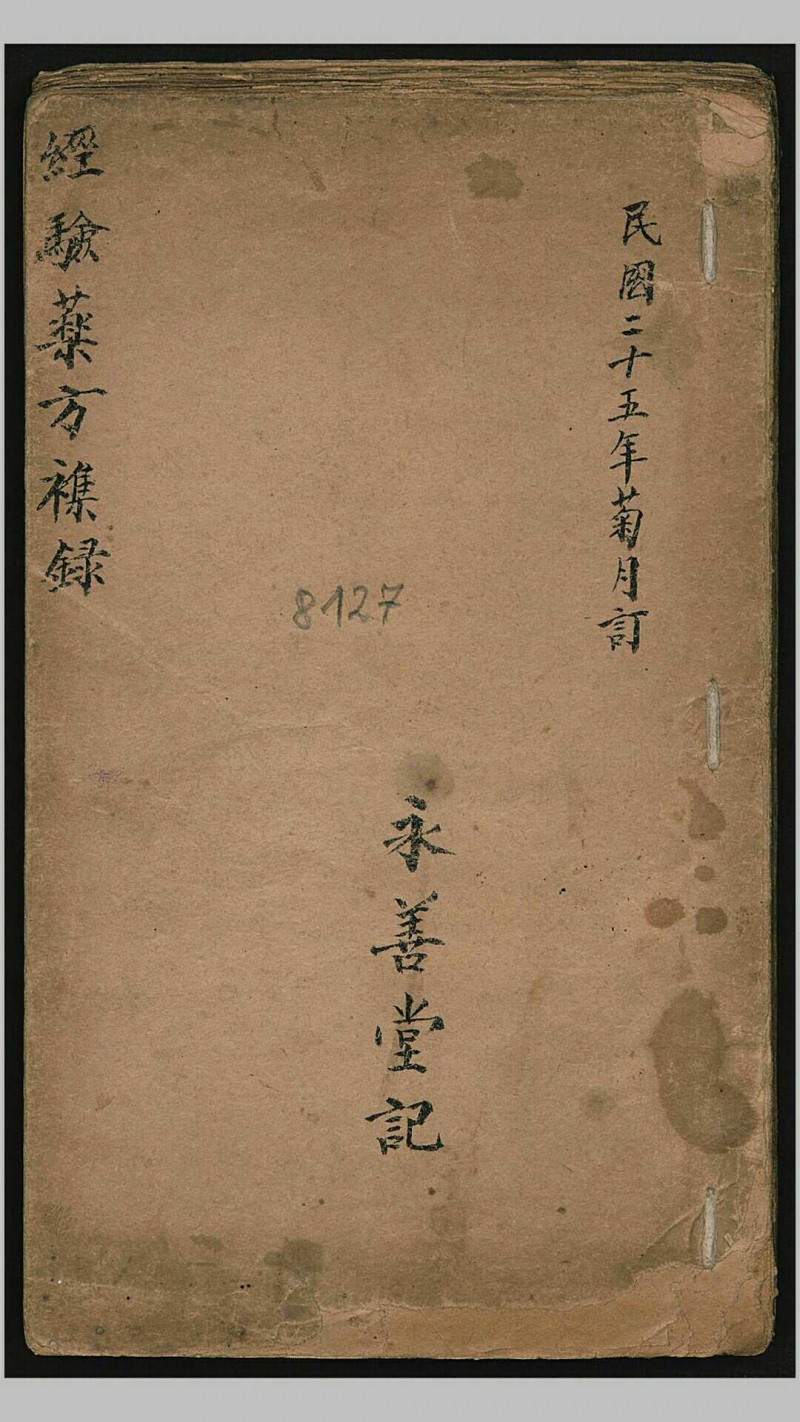 民國二十五年菊月訂
永善堂記
8127
經驗藥方襍録